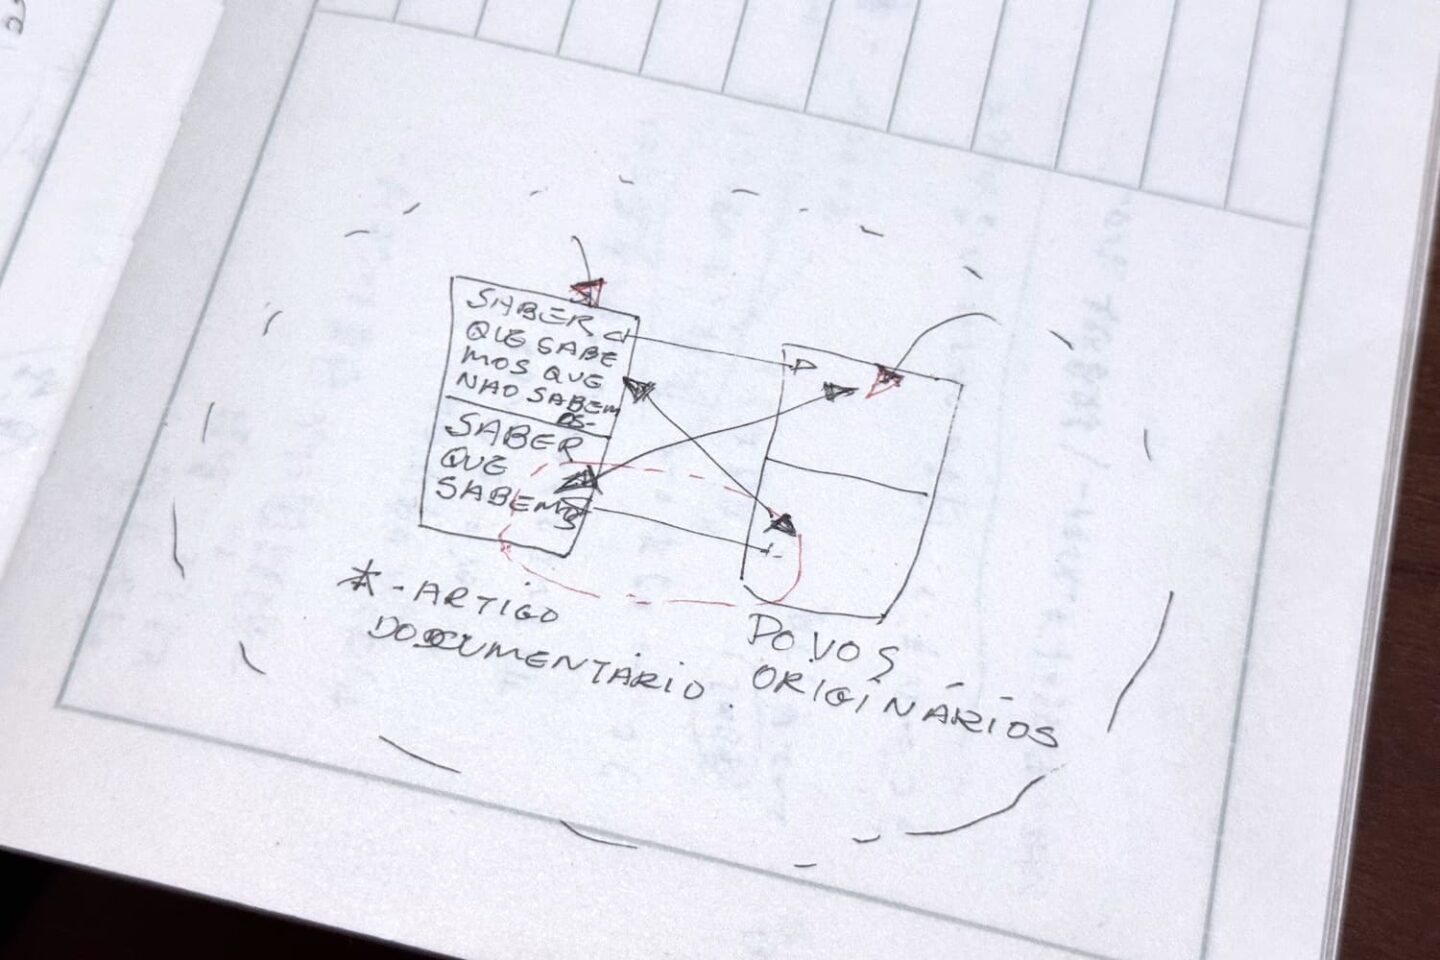 SABER
QUE SABE
MOS QUE
NAO SABEM
OS-
SABER
QUE
SABEMOS
* - ARTIGO
DOCUMENTÁRIO.
POVOS
ORIGINÁRIOS